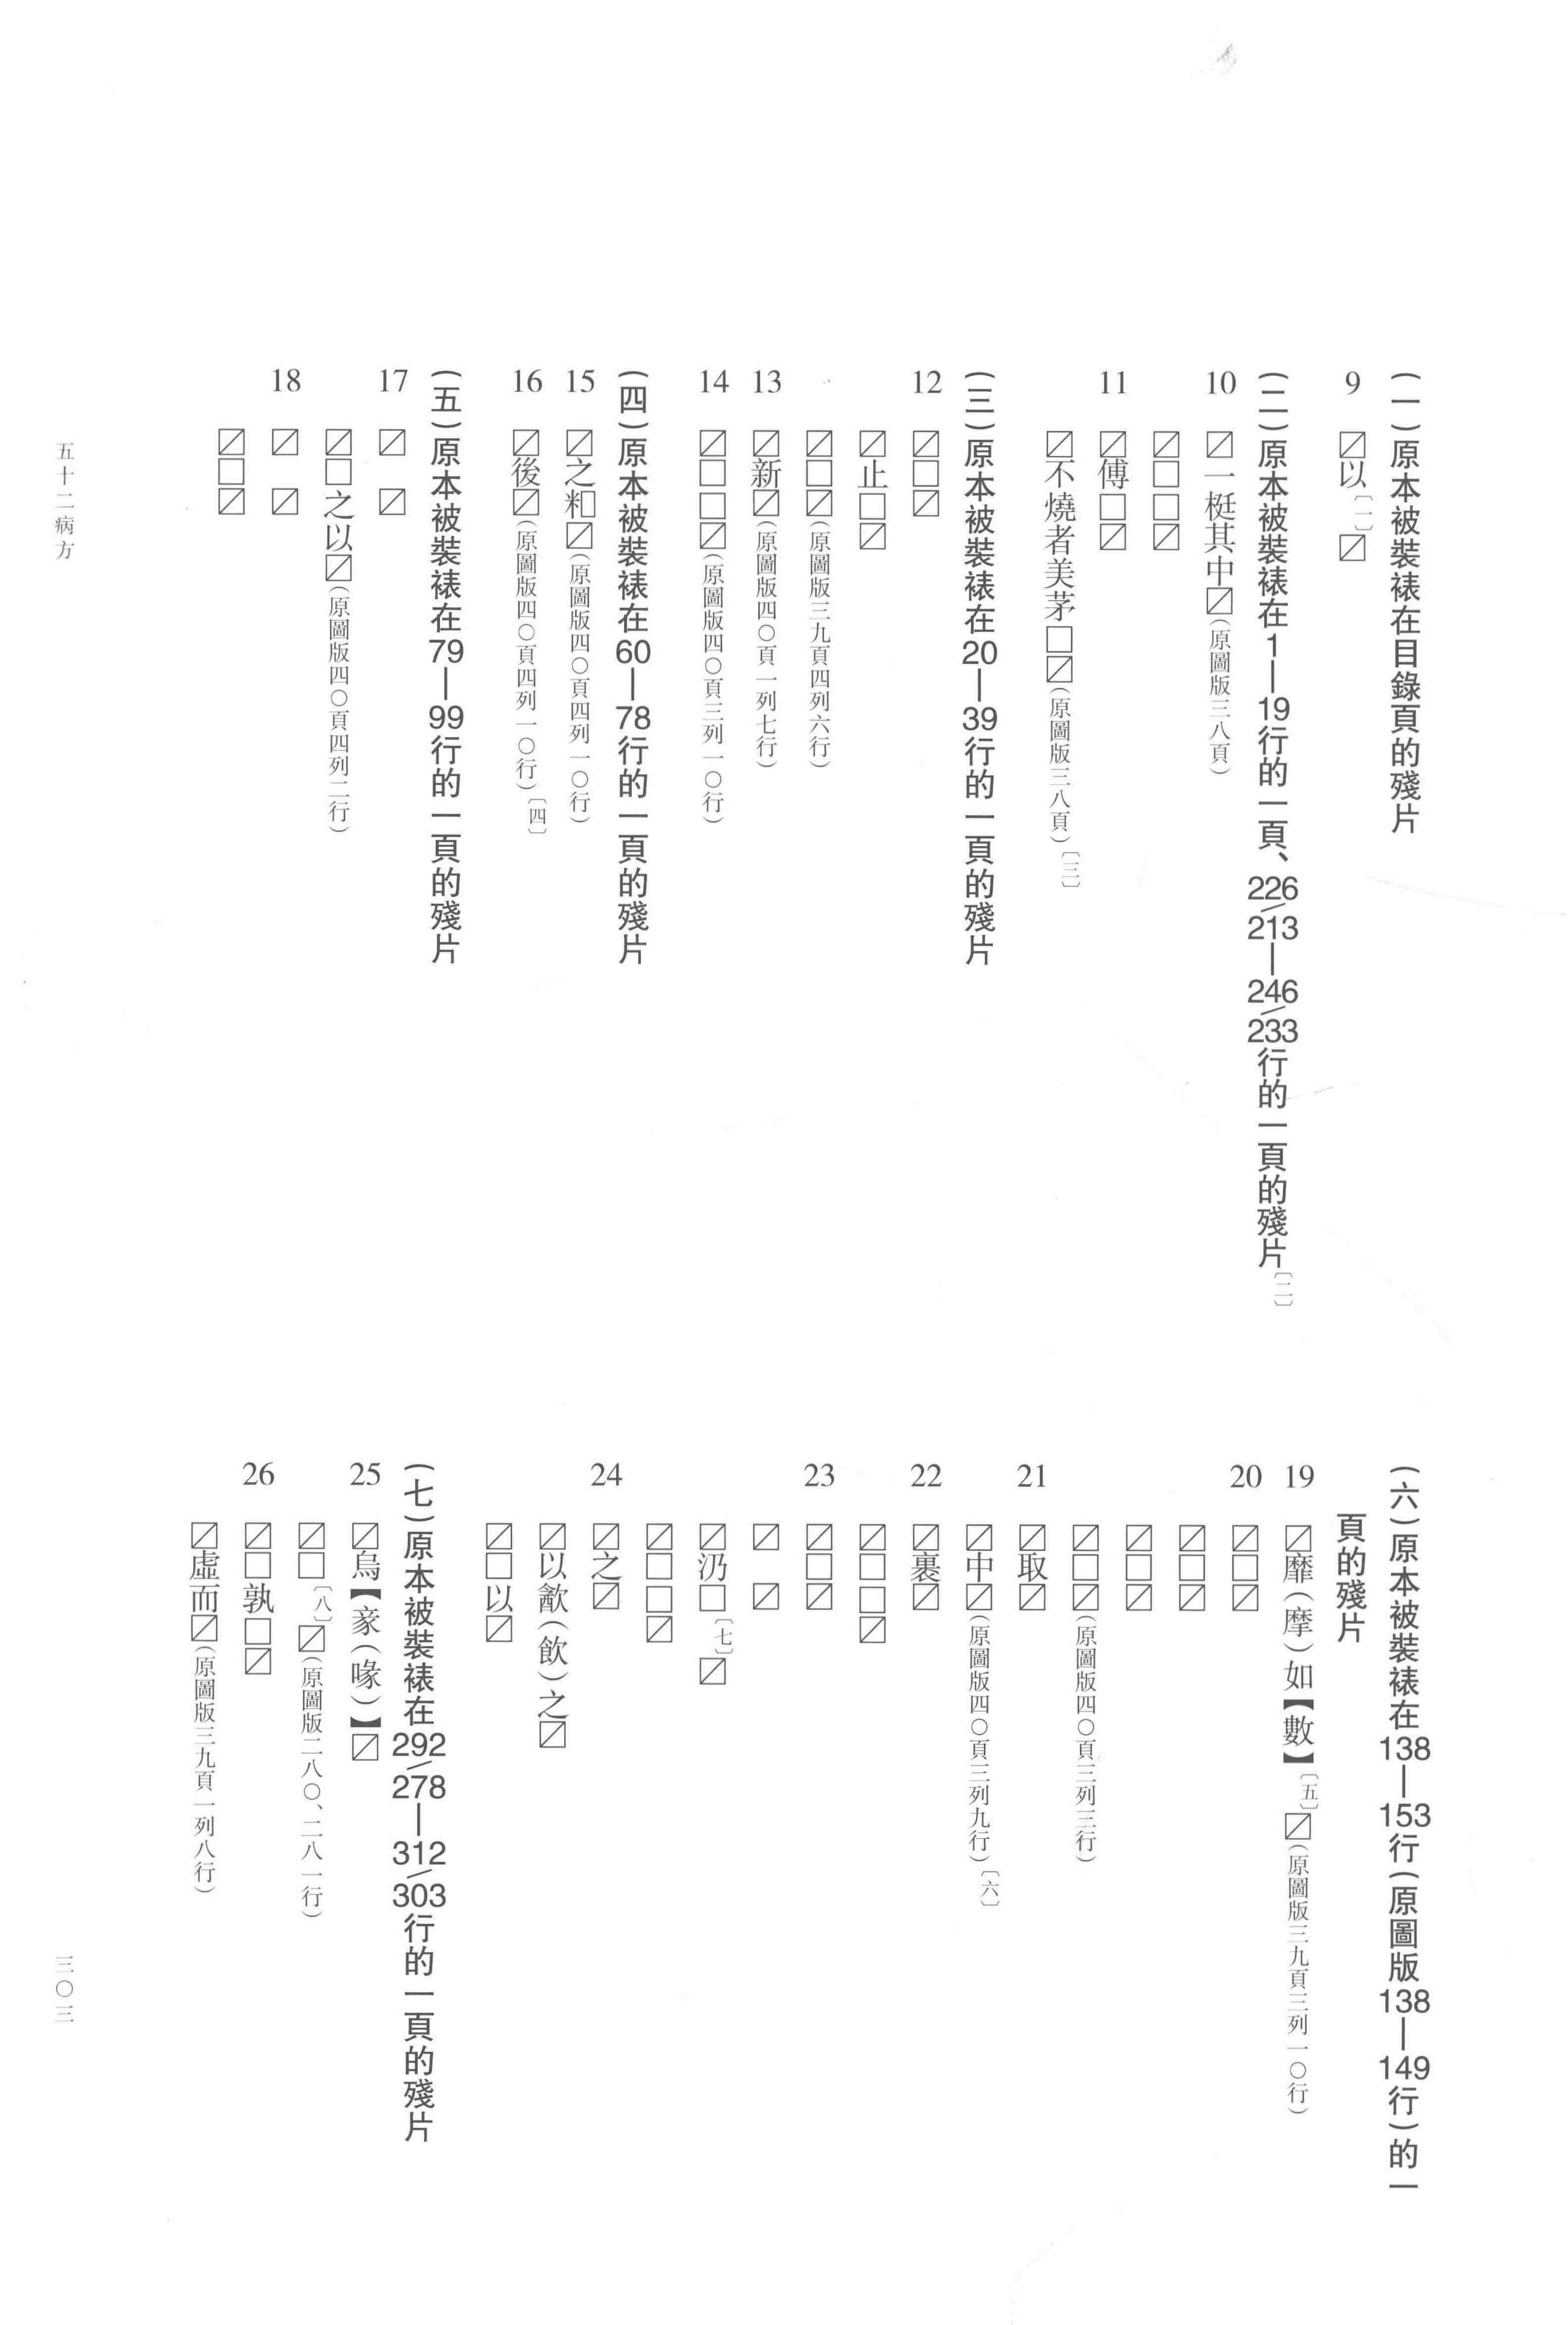 (一)原本被裝裱在目錄頁的殘片
9 ☑以〔一〕☑
(二)原本被裝裱在1—19行的一頁、226/213—246/233行的一頁的殘片〔二〕
10 ☑一梃其中☑(原圖版三八頁)
☑□□☑
11 ☑傅□☑
☑不燒者美茅□☑(原圖版三八頁)〔三〕
(三)原本被裝裱在20—39行的一頁的殘片
12 ☑□☑
☑止□☑
☑□☑(原圖版三九頁四列六行)
13 ☑新☑(原圖版四〇頁一列七行)
14 ☑□□☑(原圖版四〇頁三列一〇行)
(四)原本被裝裱在60—78行的一頁的殘片
15 ☑之籾☑(原圖版四〇頁四列一〇行)
16 ☑後☑(原圖版四〇頁四列一〇行)〔四〕
(五)原本被裝裱在79—99行的一頁的殘片
17 ☑ ☑
☑□之以☑(原圖版四〇頁四列二行)
18 ☑ ☑
☑□☑
(六)原本被裝裱在138—153行(原圖版138—149行)的一
頁的殘片
19 ☑靡(摩)如【數】〔五〕☑(原圖版三九頁三列一〇行)
20 ☑□☑
☑□☑
☑□☑
☑□☑(原圖版四〇頁三列三行)
21 ☑取☑
☑中☑(原圖版四〇頁三列九行)〔六〕
22 ☑裹☑
☑□□☑
23 ☑□☑
☑ ☑
☑沕□〔七〕☑
☑□□☑
24 ☑之☑
☑以歠(飲)之☑
☑□以☑
(七)原本被裝裱在292/278—312/303行的一頁的殘片
25 ☑烏【豙(喙)】☑
☑□〔八〕☑(原圖版二八〇、二八一行)
26 ☑□孰□☑
☑虛而☑(原圖版三九頁一列八行)
五十二病方
三〇三